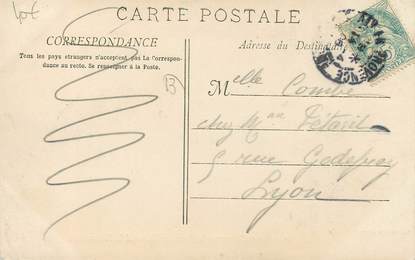 10€
CARTE POSTALE
CORRESPONDANCE
Tous les pays étrangers n'acceptent pas la correspondance au recto. Se renseigner à la Poste.
Adresse du Destinataire
Melle Combe
chez Mme
5 rue Godefroy
Lyon